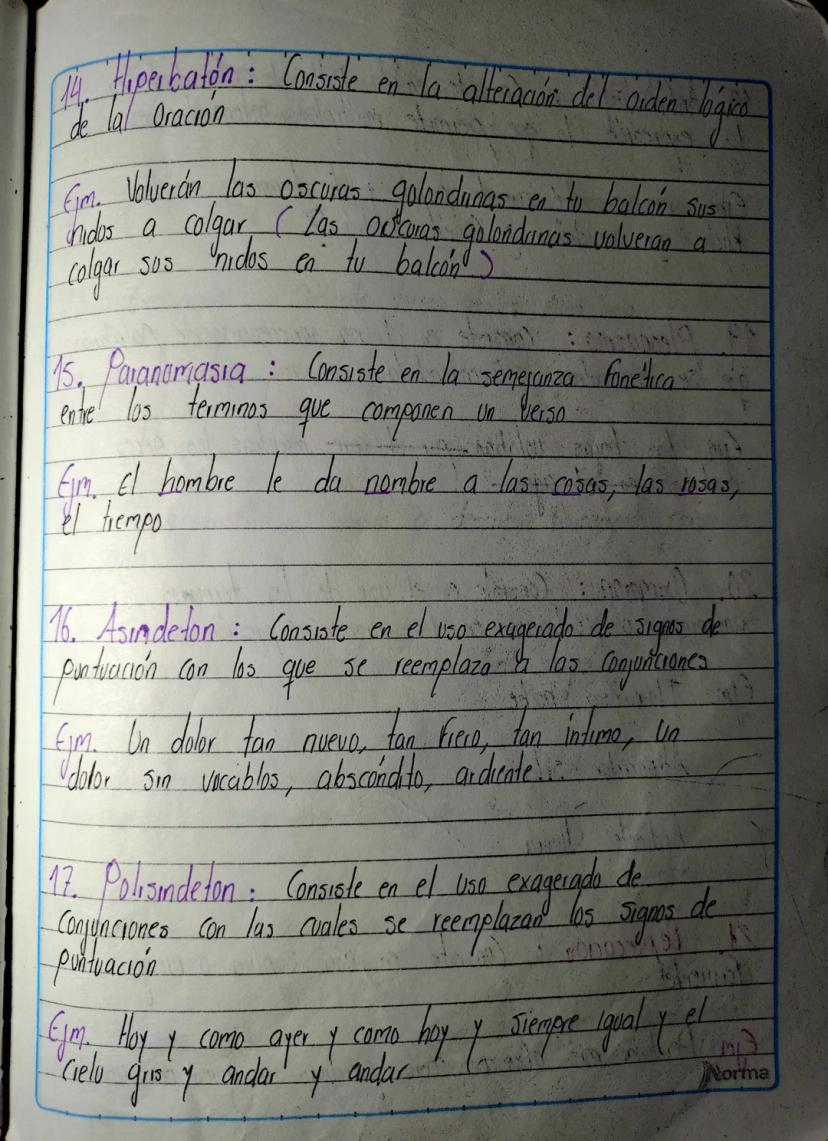 14. Hiperbatón: Consiste en la alteración del orden lógico
de la oración
Ejm. Volverán las oscuras golondrinas en tu balcón sus
nidos a colgar (Las oscuras golondrinas volveran a
colgar sus nidos en tu balcón)
15. Paranomasia: Consiste en la semejanza fonética
entre los terminos que componen un verso
Ejm. El hombre le da nombre a las cosas, las rosas,
el tiempo
16. Asindeton: Consiste en el uso exagerado de signos de
puntuación con los que se reemplaza a las conjunciones
Ejm. Un dolor tan nuevo, tan fiero, tan íntimo, un
dolor sin vocablos, abscóndito, ardiente...
17. Polisindeton: Consiste en el uso exagerado de
conjunciones con las cuales se reemplazan los signos de
puntuación
Ejm. Hoy y como ayer y como hoy y siempre igual y el
cielo gris y andar y andar
Norma